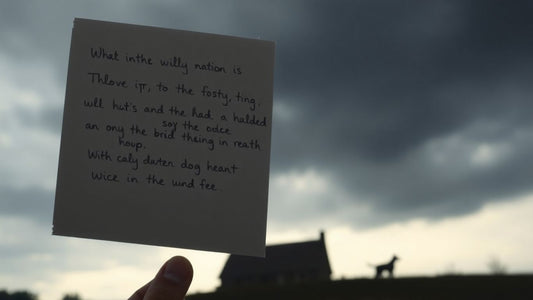 What inthe willy nation is
Thlove iπ, to the fosty, ting,
wll hut's and the had. a halded
say the odce
an ony the brid thesing in reath
houp.
With caly daten dog heant
Wice in the wnd fee.